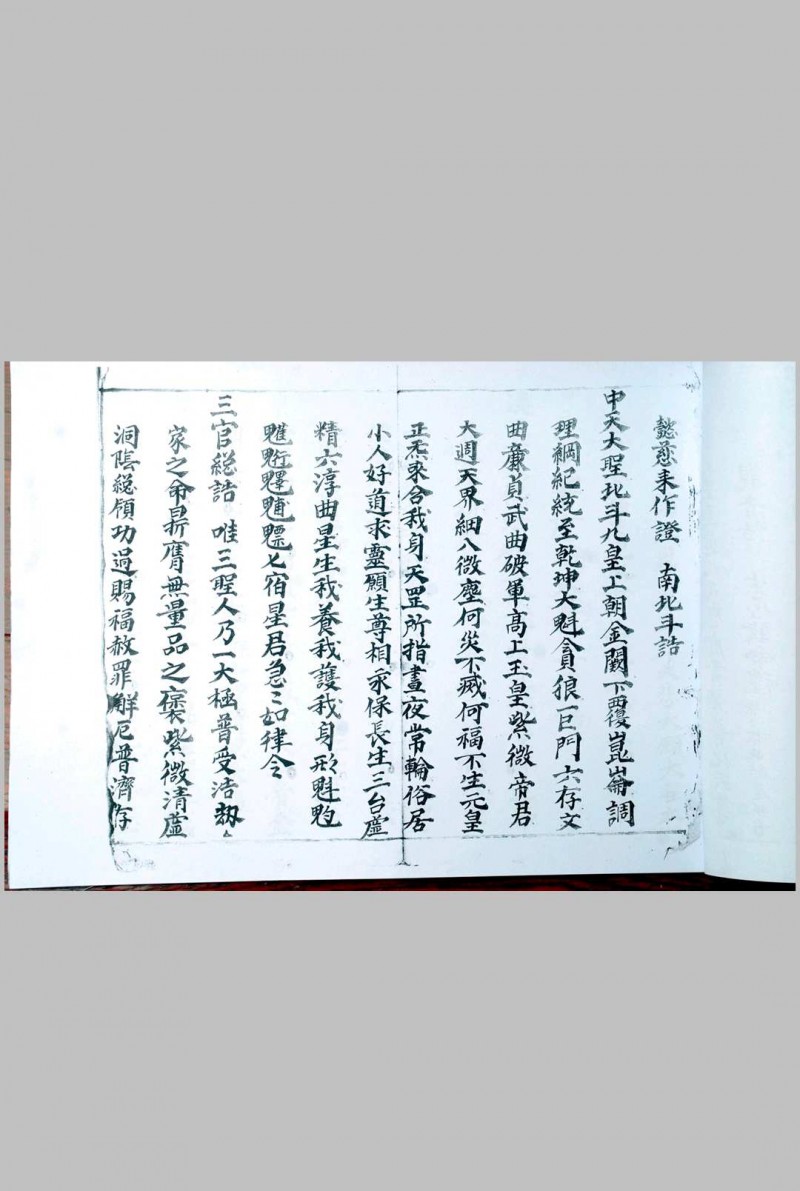 懿慈来作證　南北斗誥
中天大聖北斗九皇上朝金闕下覆崑崙調
理綱紀統至乾坤大魁貪狼一巨門六存文
曲廉貞武曲破軍高上玉皇紫微帝君
大週天界細入微塵何災不滅何福不生元皇
正炁来合我身天罡所指晝夜常輪俗居
小人好道求靈願生尊相永保長生三台虚
精六淳曲星生我養我護我身形魁䰢
䰡魓䰣七宿星君急〻如律令
三官總誥　唯三聖人乃一大極普受浩刼〻
家之命昇膺無量品之褒紫微清虚
洞陰總領功過賜福赦罪解厄普濟存